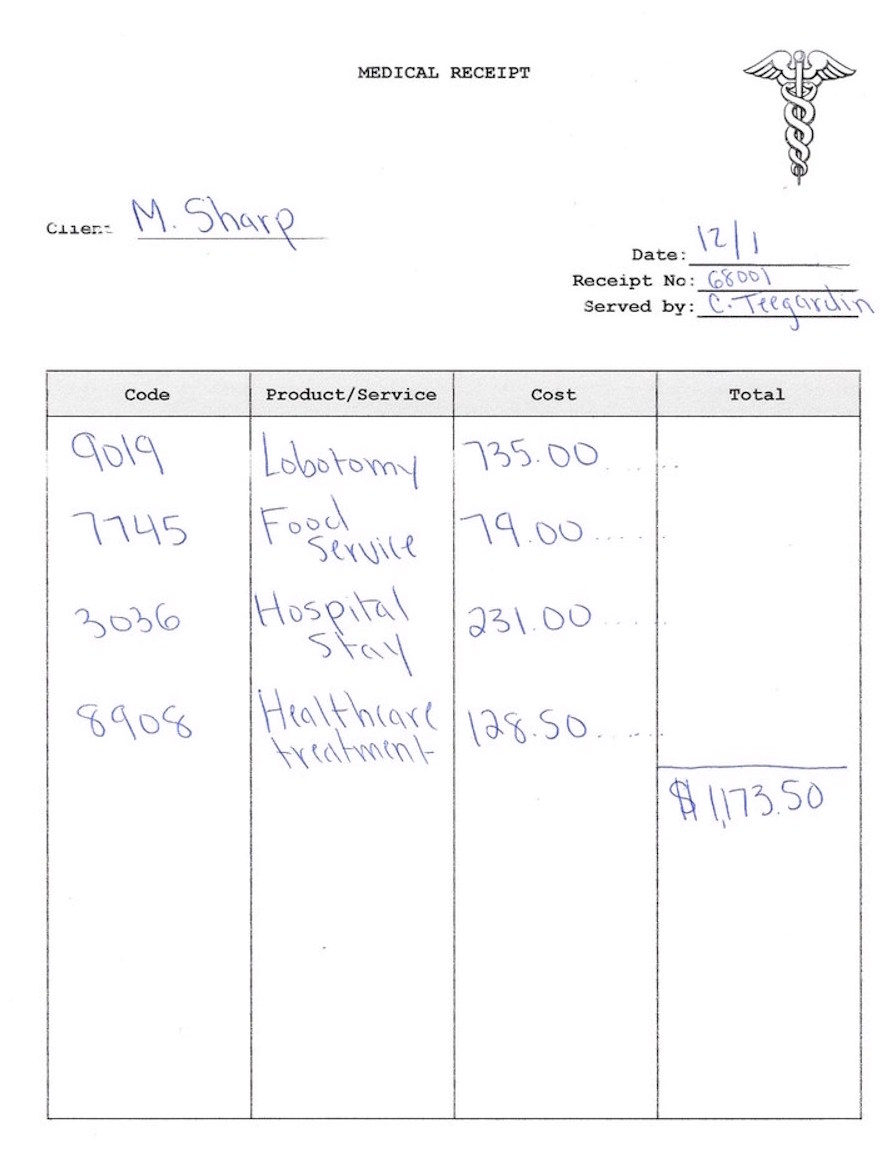 MEDICAL RECEIPT
Client M. Sharp
Date: 12/1
Receipt No: 68001
Served by: C. Teegardin
Code Product/Service Cost Total
9019 Lobotomy 735.00
7745 Food 79.00
Service
3036 Hospital 231.00
Stay
8908 Healthcare 128.50
treatment
$1,173.50